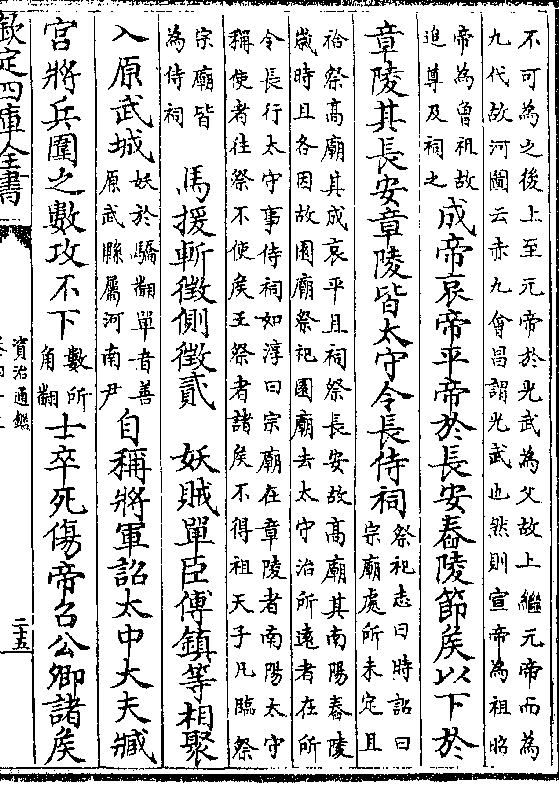 不可為之後上至元帝於光武為父故上繼元帝而為
九代故河圖云赤九會昌謂光武也然則宣帝為祖昭
帝為曾祖故
追尊及祠之
成帝哀帝平帝於長安舂陵節矦以下於
章陵其長安章陵皆太守令長侍祠
祭祀志曰時詔曰
宗廟處所未定且
祫祭高廟其成哀平且祠祭長安故高廟其南陽舂陵
嵗時且各因故園廟祭祀園廟去太守治所遠者在所
令長行太守事侍祠如淳曰宗廟在章陵者南陽太守
稱使者往祭不使矦王祭者諸矦不得祖天子凡臨祭
宗廟皆
為侍祠
馬援斬徴側徴貳
妖賊單臣傅鎮等相聚
入原武城
妖於驕翻單音善
原武縣屬河南尹
自稱將軍詔太中大夫臧
宮將兵圍之數攻不下
數所
角翻
士卒死傷帝召公卿諸矦
欽定四庫全書
資治通鑑
二十五